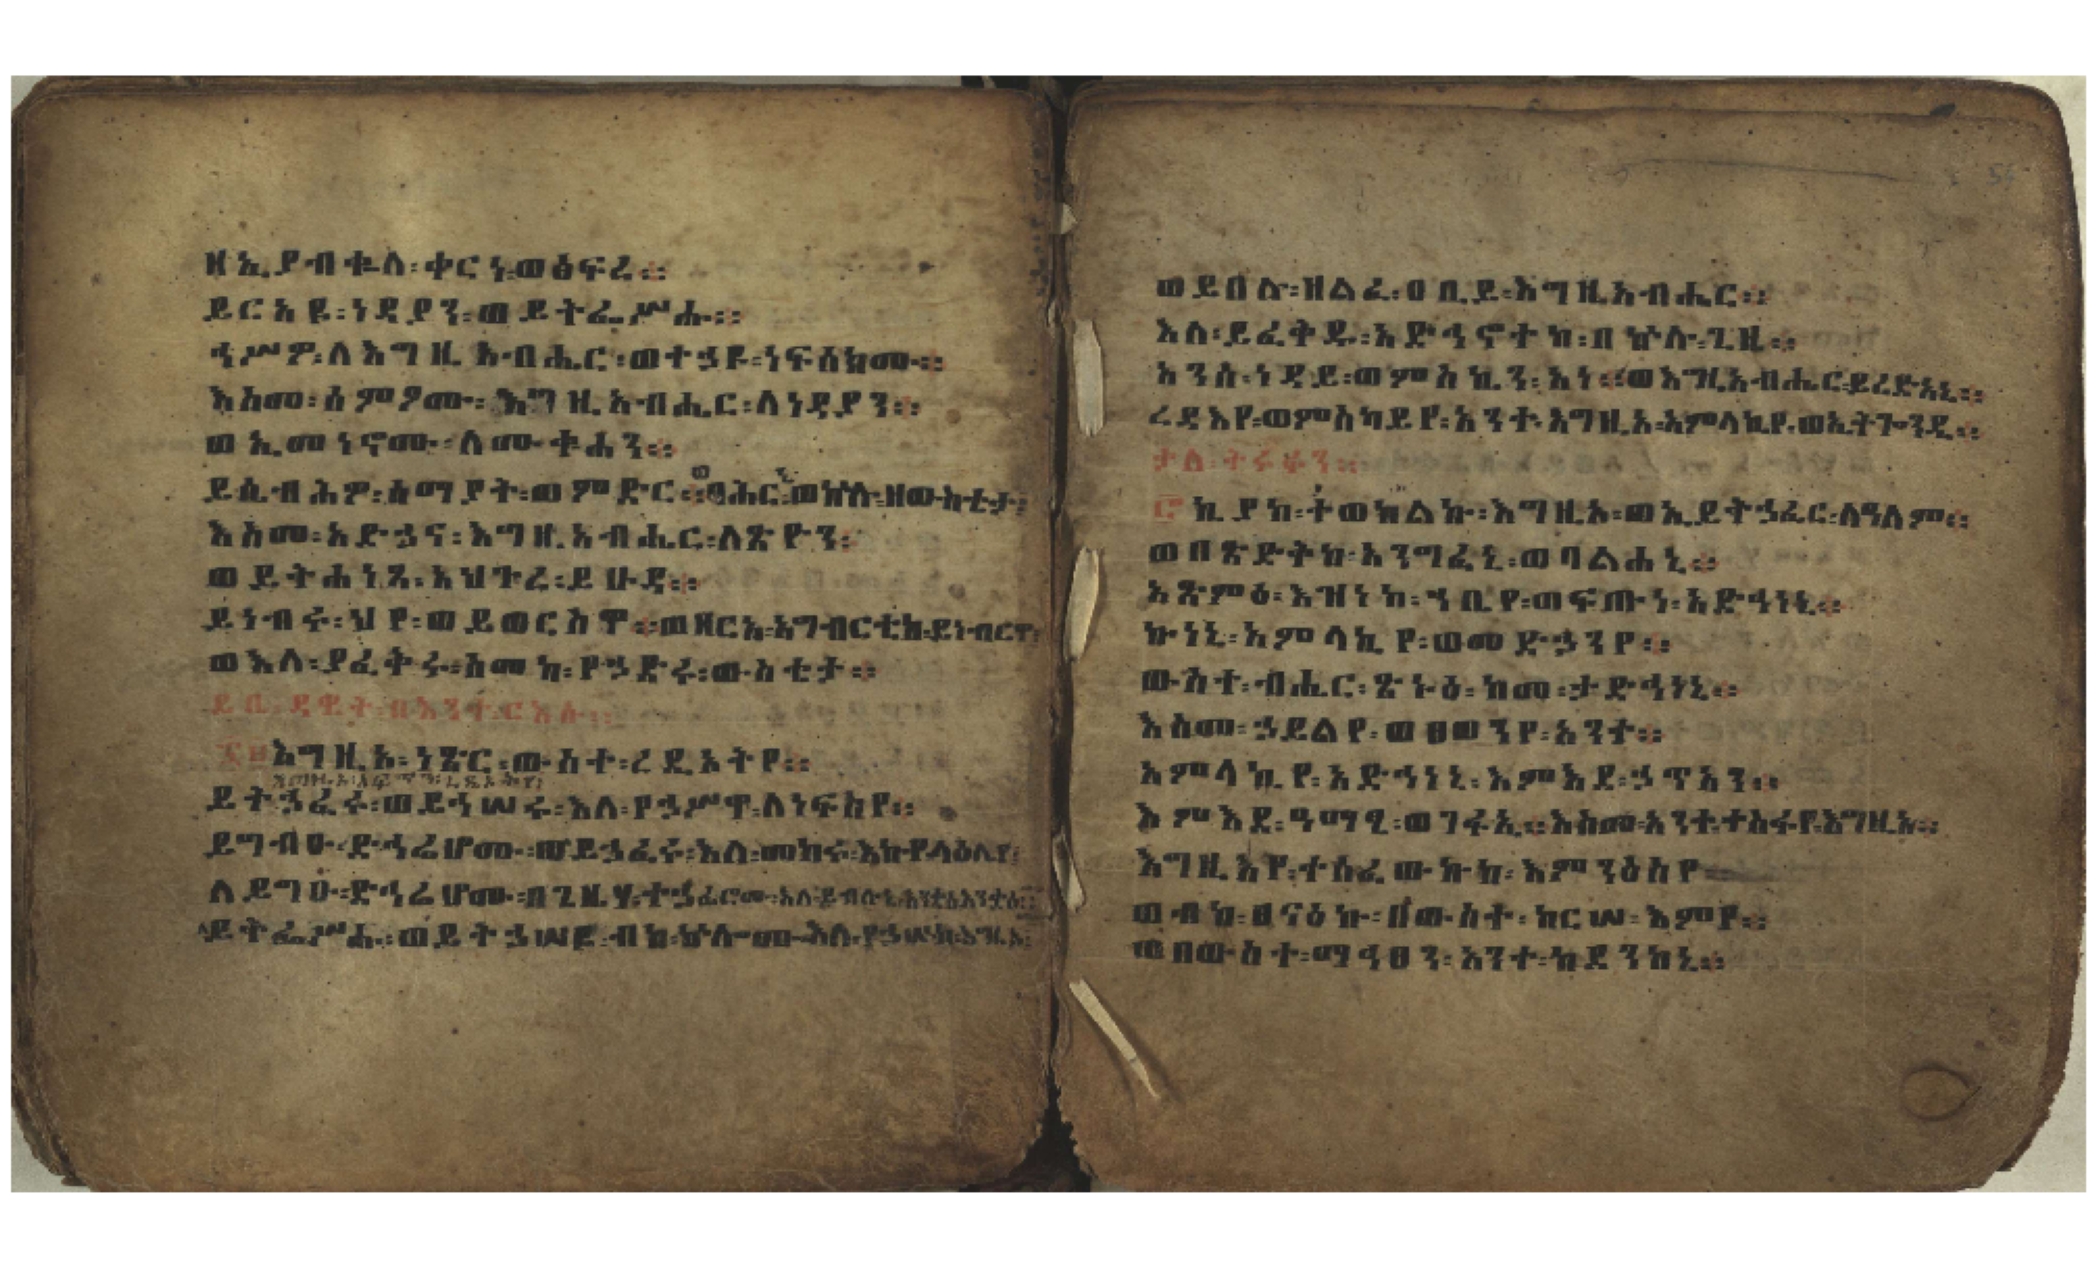 ዘኢያብቈለ፡ቀርነ፡ወፅፍረ።
ይርአዩ፡ነዳያን፡ወይትፌሥሑ።
ኅሥዎ፡ለእግዚአብሔር፡ወተኃዩ፡ነፍስክሙ።
እስመ፡ሰምዖሙ፡እግዚአብሔር፡ለነዳያን።
ወኢመነኖሙ፡ለሙቁሓን።
ይሴብሕዎ፡ሰማያት፡ወምድር።ባሕር፡ወኵሉ፡ዘውስቴታ፡
እስመ፡አድኃና፡እግዚአብሔር፡ለጽዮን፡
ወይትሐነጻ፡አህጉረ፡ይሁዳ።
ይነብሩ፡ህየ፡ወይወርስዋ።ወዘርአ፡አግብርቲከ፡ይነብርዋ፡
ወእለ፡ያፈቅሩ፡ስመከ፡የኃድሩ፡ውስቴታ።
ይቤ፡ዳዊት፡በእንተ፡ርእሱ።
፷፱እግዚአ፡ነጽር፡ውስተ፡ረዲኦትየ።
ይትኃፈሩ፡ወይኅሠሩ፡እለ፡የኃሥዋ፡ለነፍስየ።
ይግብዑ፡ድኅሬሆሙ፡ወይኃፈሩ፡እለ፡መከሩ፡እኩየ፡ላዕሌየ፡
ለይግዑ፡ድኅሬሆሙ፡በጊዜሃ፡ተኃፊሮሙ፡እለ፡ይብሉኒ፡
ይትፌሥሑ፡ወይትኃሠዩ፡ብከ፡ኵሎሙ፡እለ፡የኃሡከ፡እግዚኦ፡
ወይበሉ፡ዘልፈ፡ዐቢይ፡እግዚአብሔር።
እለ፡ይፈቅዱ፡አድኅኖተከ፡በኵሉ፡ጊዜ።
አንሰ፡ነዳይ፡ወምስኪን፡አነ።ወእግዚአብሔር፡ይረድአኒ።
ረዳእየ፡ወምስካይየ፡አንተ፡እግዚአ፡አምላኪየ፡ወኢትጐንዲ።
ታለ፡ትሩፋን።
፸ኪያከ፡ተወከልኩ፡እግዚአ፡ወኢይትኃፈር፡ለዓለም።
ወበጽድቅከ፡አንግፈኒ፡ወባልሐኒ።
አጽምዕ፡እዝነከ፡ኀቤየ፡ወፍጡነ፡አድኅነኒ።
ኩነኒ፡አምላኪየ፡ወመድኃንየ።
ውስተ፡ብሔር፡ጽኑዕ፡ከመ፡ታድኅነኒ።
እስመ፡ኃይልየ፡ወፀወንየ፡አንተ።
አምላኪየ፡አድኅነኒ፡እምእደ፡ኃጥአን።
እምእደ፡ዓማፂ፡ወገፋኢ።እስመ፡አንተ፡ተስፋየ፡እግዚአ።
እግዚእየ፡ተሰፈውኩከ፡እምንዕስየ
ወብከ፡ፀናዕኩ፡በውስተ፡ከርሠ፡እምየ።
ወበውስተ፡ማኅፀን፡አንተ፡ከደንከኒ።